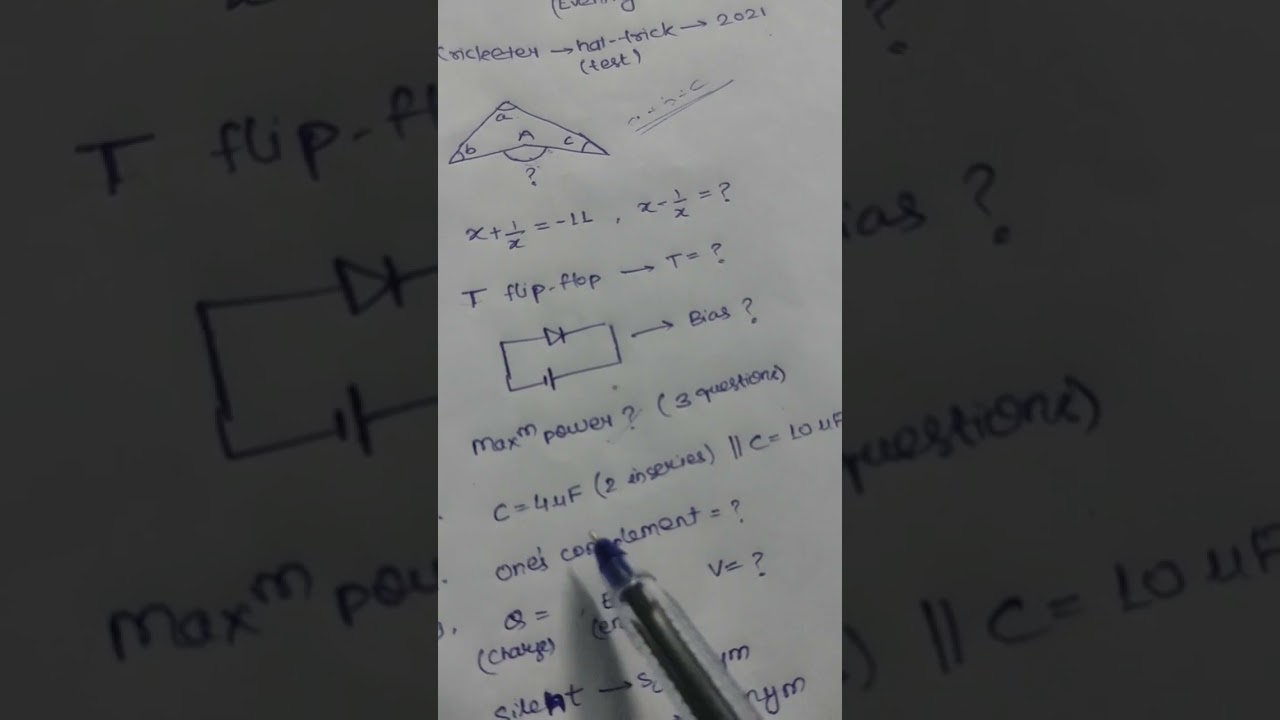 (Evening
Cricketer → hat-trick → 2021
(test)
a
b A c
?
x + 1/x = -11 , x - 1/x = ?
T flip-flop → T = ?
→ Bias ?
Maxᵐ power ? (3 questions)
C = 4μF (2 in series) || C = 10 μF
one's complement = ?
Q = V = ?
(Charge)
silent →